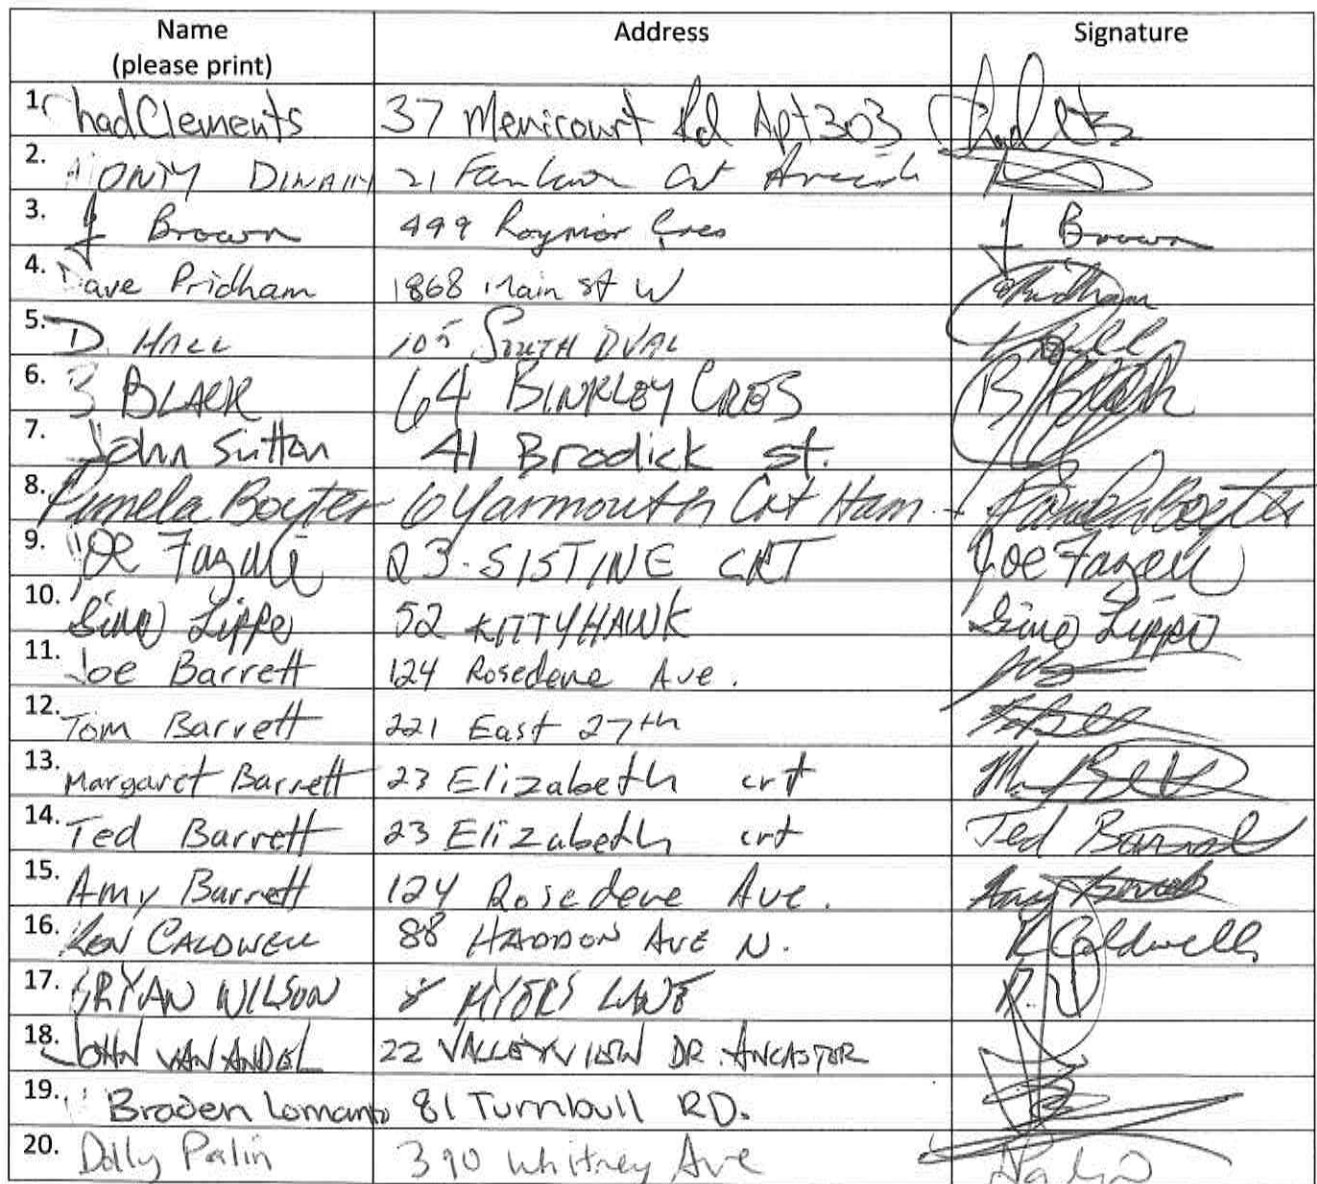 Name Address Signature
(please print)
1. Chad Clements 37 Menicourt Rd Apt 303
2. 21
3. J Brown 499 Raymor Cres J Brown
4. Dave Pridham 1868 Main St W Pridham
5. D. HALL 105 SOUTH OVAL
6. B BLACK 64 BINKLEY CRES B Black
7. John Sutton 41 Brodick st.
8. Pamela Boyter 6 Yarmouth Crt Ham. Pamela Boyter
9. Joe Fazari 23 SISTINE CRT
10. Gino Lippo 52 KITTYHAWK Gino Lippo
11. Joe Barrett 124 Rosedene Ave.
12. Tom Barrett 221 East 27th
13. Margaret Barrett 23 Elizabeth crt
14. Ted Barrett 23 Elizabeth crt Ted Barrett
15. Amy Barrett 124 Rosedene Ave. Amy Barrett
16. KEN CALDWELL 88 HADDON AVE N. K Caldwell
17. BRYAN WILSON 8 MYERS LANE
18. JOHN VAN ANDEL 22 VALLEYVIEW DR. ANCASTER
19. Braden Lomanto 81 Turnbull RD.
20. Dolly Palin 390 Whitney Ave Palin